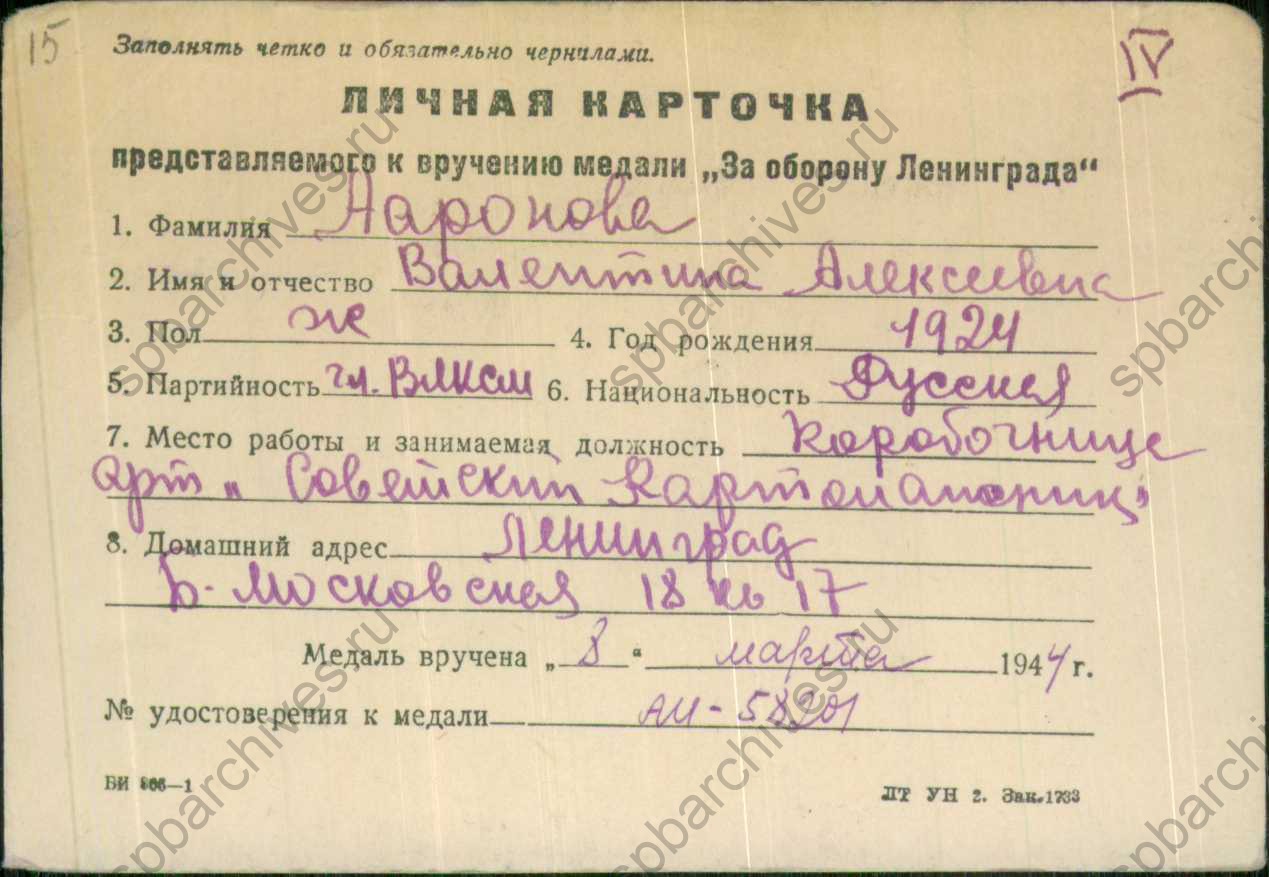 15
IV
Заполнять четко и обязательно чернилами.
ЛИЧНАЯ КАРТОЧКА
представляемого к вручению медали „За оборону Ленинграда“
1. Фамилия Ааронова
2. Имя и отчество Валентина Алексеевна
3. Пол ж 4. Год рождения 1924
5. Партийность чл. ВЛКСМ 6. Национальность Русская
7. Место работы и занимаемая должность Коробочница
арт „Советский Картонажник"
8. Домашний адрес Ленинград
Б. Московская 18 кв 17
Медаль вручена „8“ марта 1944 г.
№ удостоверения к медали АИ-58201
БИ 866—1
ЛТ УН 2. Зак. 1733
spbarchives.ru
spbarchives.ru
spbarchives.ru
spbarchives.ru
spbarchives.ru
spbarchives.ru